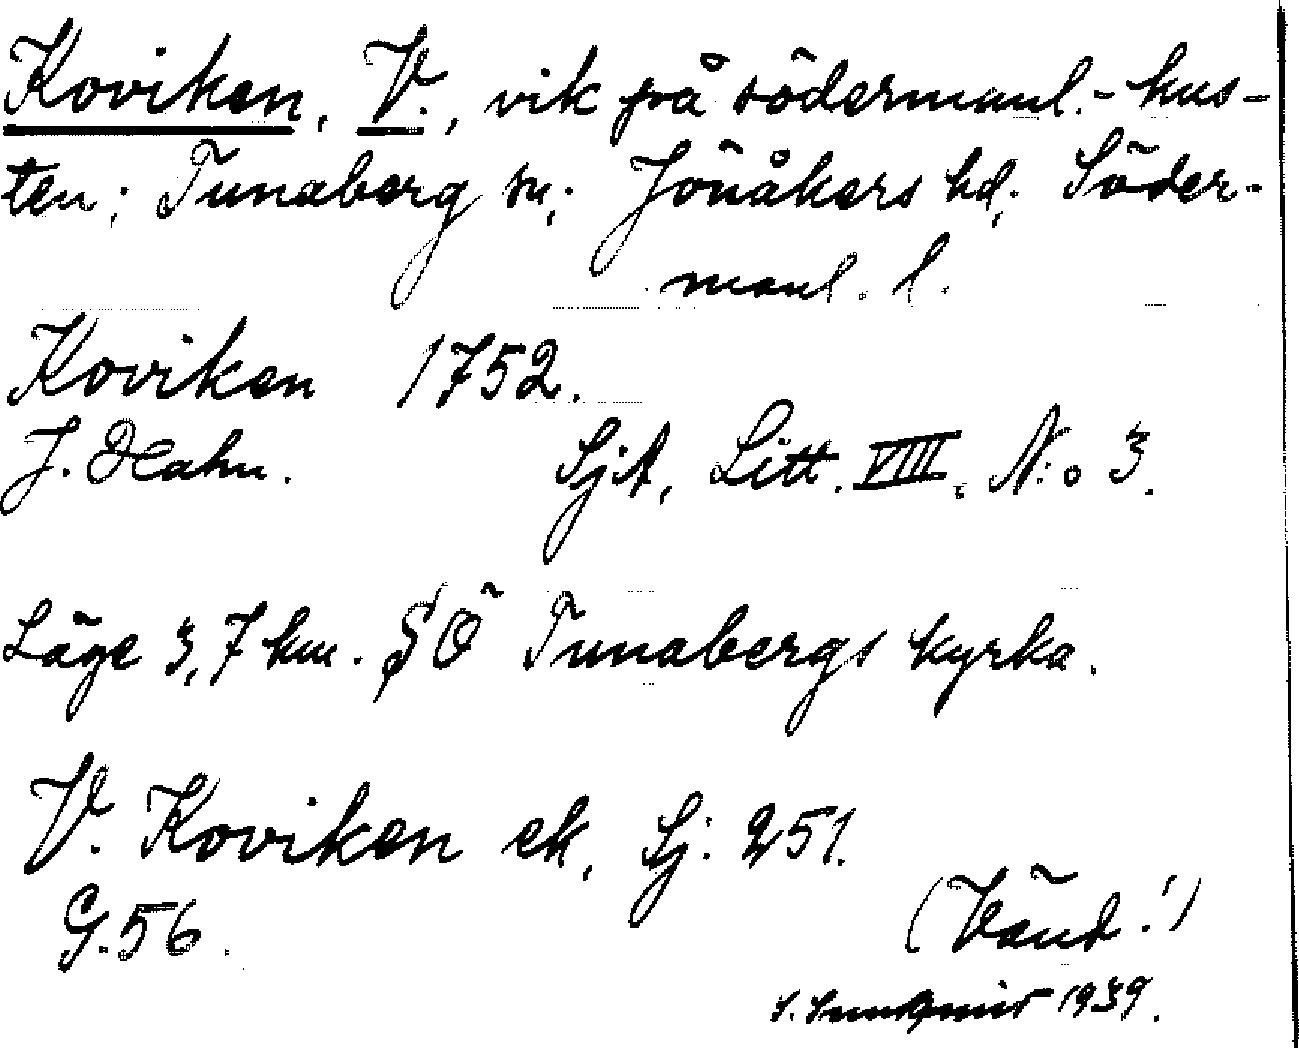 Koviken, V., vik på södermanl.-kus-
ten; Tunaberg sn; Jönåkers hd; Söder-
manl. l.
Koviken 1752.
J. Hahn. Sjk, Litt. VIIII. N:o 3.
Läge 3,7 km. SÖ Tunabergs kyrka.
V. Koviken ek, Sj. 251.
G. 56.
(Vänd!)
S. Sundqvist 1939.